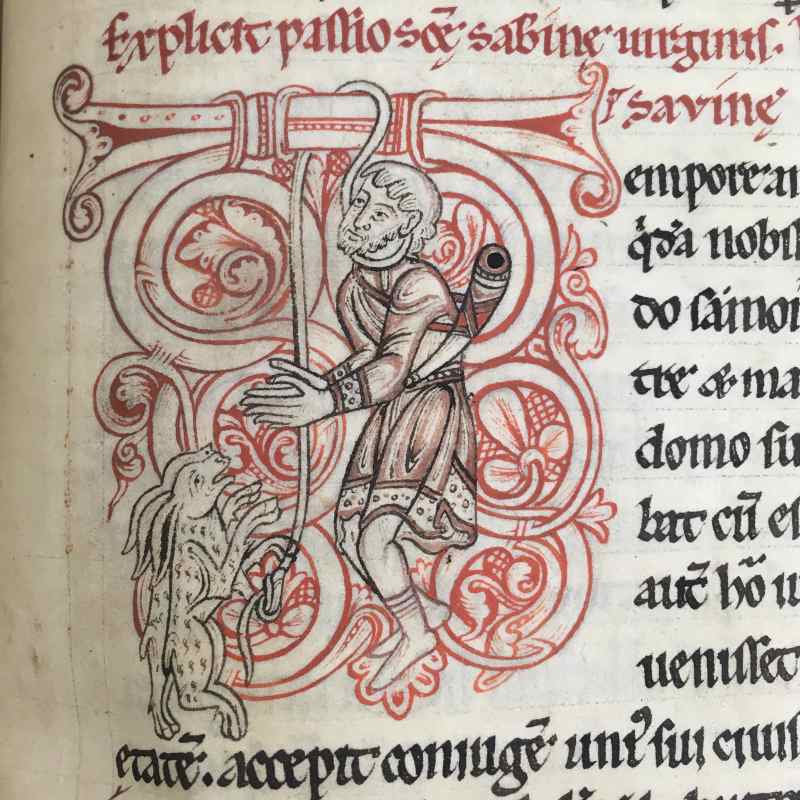 Explicit passio sc̄ę sabinę uirginis.
savinę
empore
q̇dā nobil
do
tre & ma
domo su
bat cū es
autē hō u
uenisset
etatē. accepit coniugē uni᾽ sui ciuis